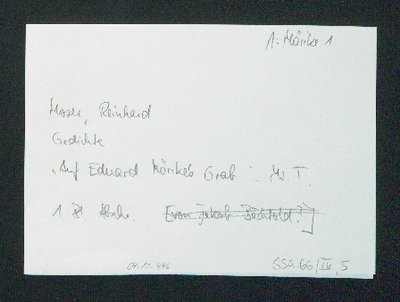 A: Mörike 1
Moser, Reinhard
Gedichte
"Auf Eduard Mörikes Grab". M. T.
1 Bl. Hs. [von Jakob Bächtold?]
GSA 66/IV, 5